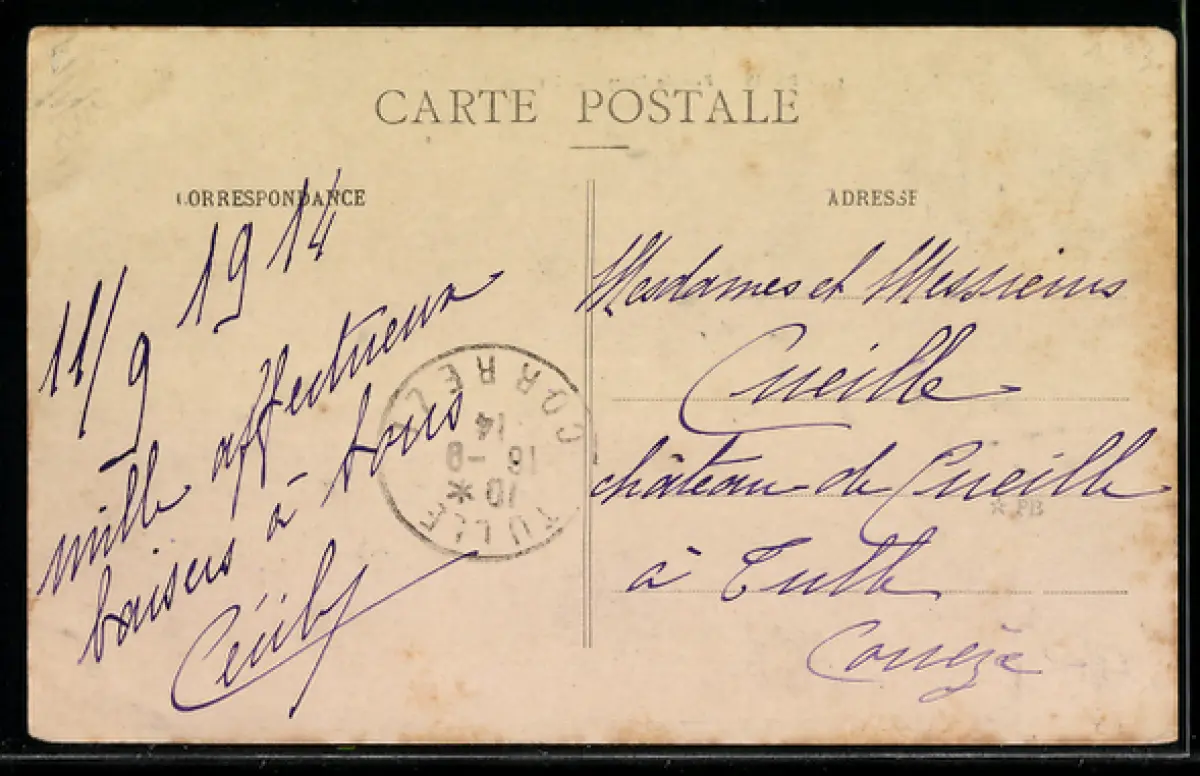 CARTE POSTALE
CORRESPONDANCE
11/9 1914
mille affectueux
baisers à tous
Cécily
TULLE CORRÈZE
10 *
16 - 9
14
ADRESSE
Mesdames et Messieurs
Cueille
château de Cueille
à Tulle
Corrèze
* PB